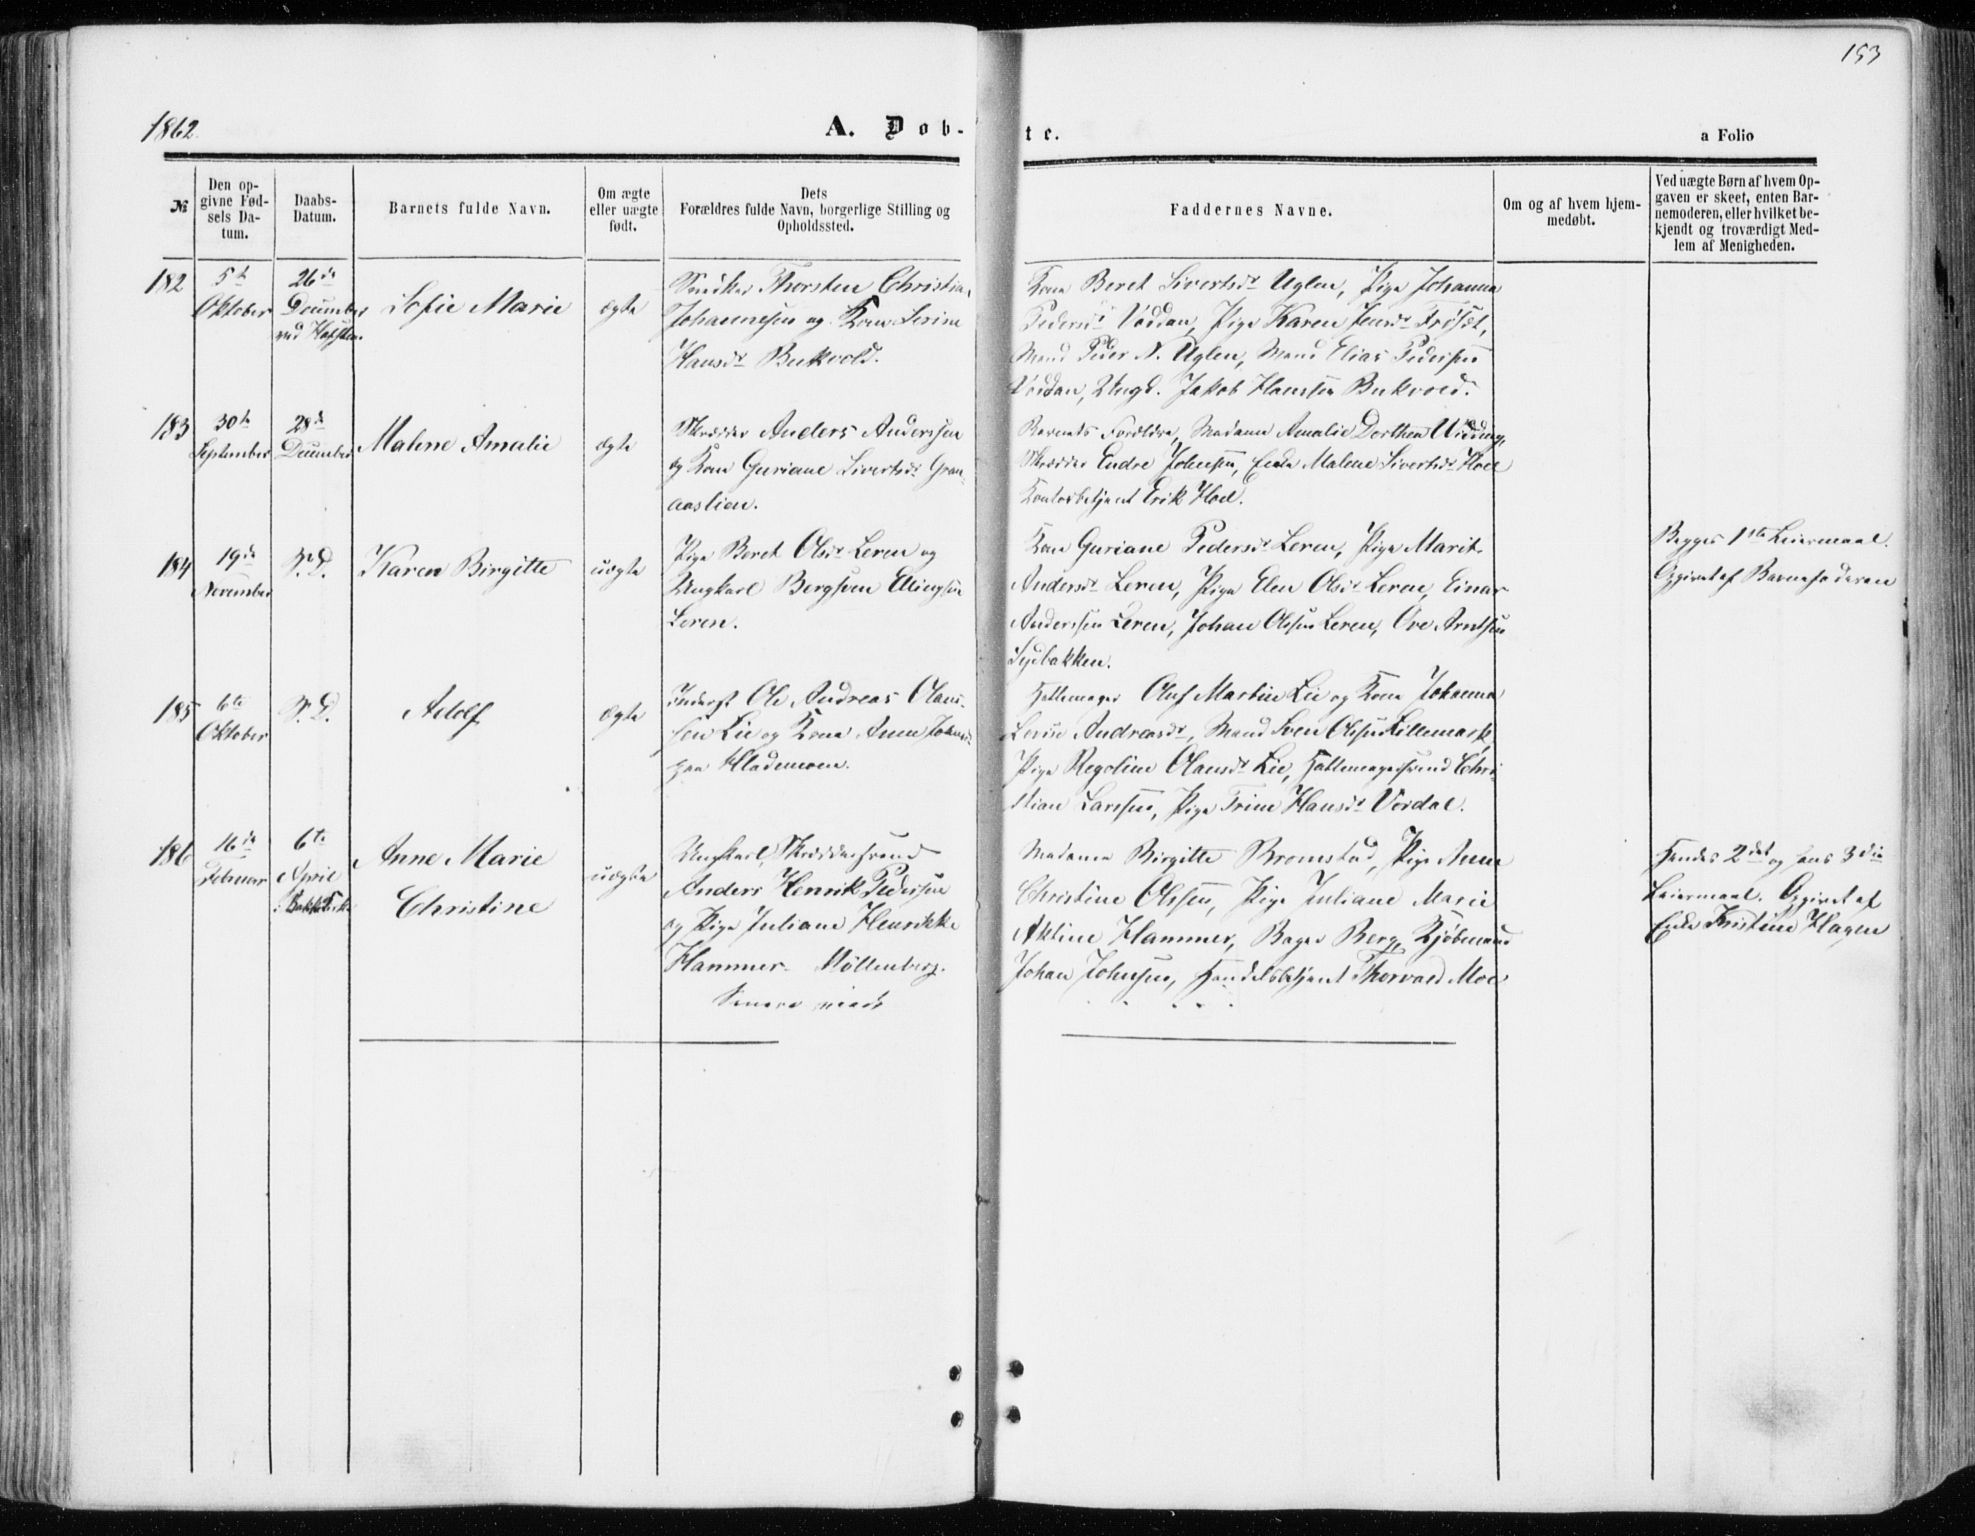 153
1862.
A. Døb-
te.
a Folio
№
Den op-
givne Fød-
sels Da-
tum.
Daabs-
Datum.
Barnets fulde Navn.
Om ægte
eller uægte
født.
Dets
Forældres fulde Navn, borgerlige Stilling og
Opholdssted.
Faddernes Navne.
Om og af hvem hjem-
medøbt.
Ved uægte Børn af hvem Op-
gaven er skeet, enten Bar-
nemoderen, eller hvilket be-
kjendt og troværdigt Med-
lem af Menigheden.
182
5te
Oktober
26de
December
ved
Sofie Marie
ægte
Snedker Thorsten Christian
Johannesen og Kone Serine
Hansdt Bukvold.
Kone Beret Sivertsdt Uglen, Pige Johanna
Pedersdt Voddan, Pige Karen Jensdt Frøset,
Mand Peder N. Uglen, Mand Elias Pedersen
Voddan, Ungk. Jakob Hansen Bukvold.
183
30te
September
28de
December
Malene Amalie
ægte
Skrædder Anders Anderssen
og Kone Guriane Sivertsdt Gran-
aaslien.
Barnets Forældre, Madame Amalie Dorthea Widding,
Skrædder Endre Johnsen, Enke Malene Sivertsdt Hoel
Kontorbetjent Erik Hoel.
184
19de
November
S.D.
Karen Birgitte
uægte
Pige Beret Olsdt Leren og
Ungkarl Bergsven Ellingsen
Leren.
Kone Guriane Pedersdt Leren, Pige Marit
Andersdt Leren, Pige Elen Olsdt Leren, Einar
Anderssen Leren, Johan Olssen Leren, Ove Arntsen
Sydbakken.
Begges 1ste Leiermaal.
Opgivet af Barnefaderen
185
6te
Oktober
S.D.
Adolf
ægte
Inderst Ole Andreas Olaus-
sen Lie og Kone Anne
paa Hlademoen.
Hattemager Oluf Martin Lie og Kone Johanna
Andreasdt, Mand Sven Olsen Lillemark,
Pige Regoline Olausdt Lie, Hattemagersvend Chri-
stian Larssen, Pige Trine Hansdt Vordal.
186
16de
Februar
6te
April
Anne Marie
Christine
uægte
Ungkarl, Skræddersvend
Anders Henrik Pedersen
og Pige Juliane Henrikke
Hammer. Møllenberg.
Senere
Madame Birgitte Bromstad, Pige Anne
Christine Olssen, Pige Juliane Marie
Aktine Hammer, Bager Berg, Kjøbmand
Johan Johnsen, Handelsbetjent Thorvald Moe
Hendes 2det og hans 3die
Leiermaal. Opgivet af
Enke Kristine Hagen